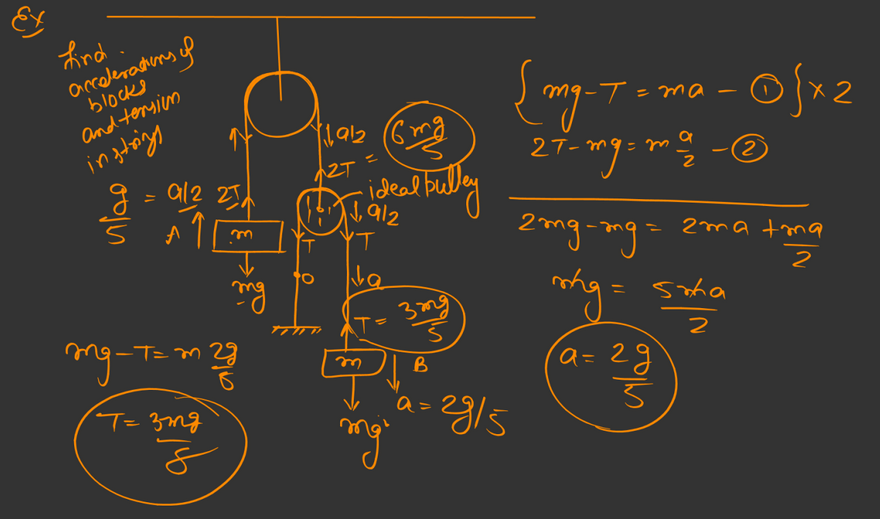 Ex
find
accelerations of
blocks
and tension
in strings
g/5 = a/2
2T
A
m
mg
↓a/2
2T = 6mg/5
ideal pulley
↓a/2
T
T
O
↓a
T = 3mg/5
m
B
mg
a = 2g/5
mg-T = m 2g/5
T = 3mg/5
{ mg-T = ma - ① } × 2
2T-mg = m a/2 - ②
2mg-mg = 2ma + ma/2
mg = 5ma/2
a = 2g/5